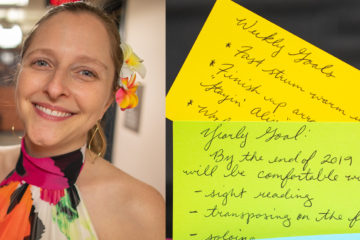 Weekly Goals
* Fast strum warm u
* Finish up arr
Stayin' Ali
* Wo
Yearly Goal:
By the end of 2019
will be comfortable w
- sight reading
- transposing on the f
- soloing